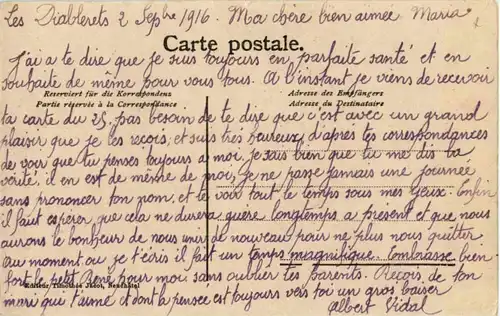 Les Diablerets 2 Sepbre 1916. Ma chère bien aimée Maria
Carte postale.
J'ai a te dire que je suis toujours en parfaite santé et en
souhaite de même pour vous tous. A l'instant je viens de recevoir
Reserviert für die Korrespondenz
Adresse des Empfängers
Partie réservée à la Correspondance
Adresse du Destinataire
ta carte du 25, pas besoin de te dire que c'est avec un grand
plaisir que je les reçois; et suis très heureux d'après tes correspondances
de voir que tu penses toujours a moi, je sais bien que tu me dis la
vérité, il en est de même de moi, je ne passe jamais une journée
sans prononcer ton nom, et te voir tout le temps sous mes yeux. Enfin
il faut espérer que cela ne durera guère longtemps a présent et que nous
aurons le bonheur de nous unir de nouveau pour ne plus nous quitter
au moment ou je t'écris il fait un temps magnifique. Embrasse bien
fort le petit René pour moi sans oublier tes parents. Reçois, de ton
Editeur Timothée Jacot, Neuchâtel
mari qui t'aime et dont la pensée est toujours vers toi un gros baiser
Albert Vidal